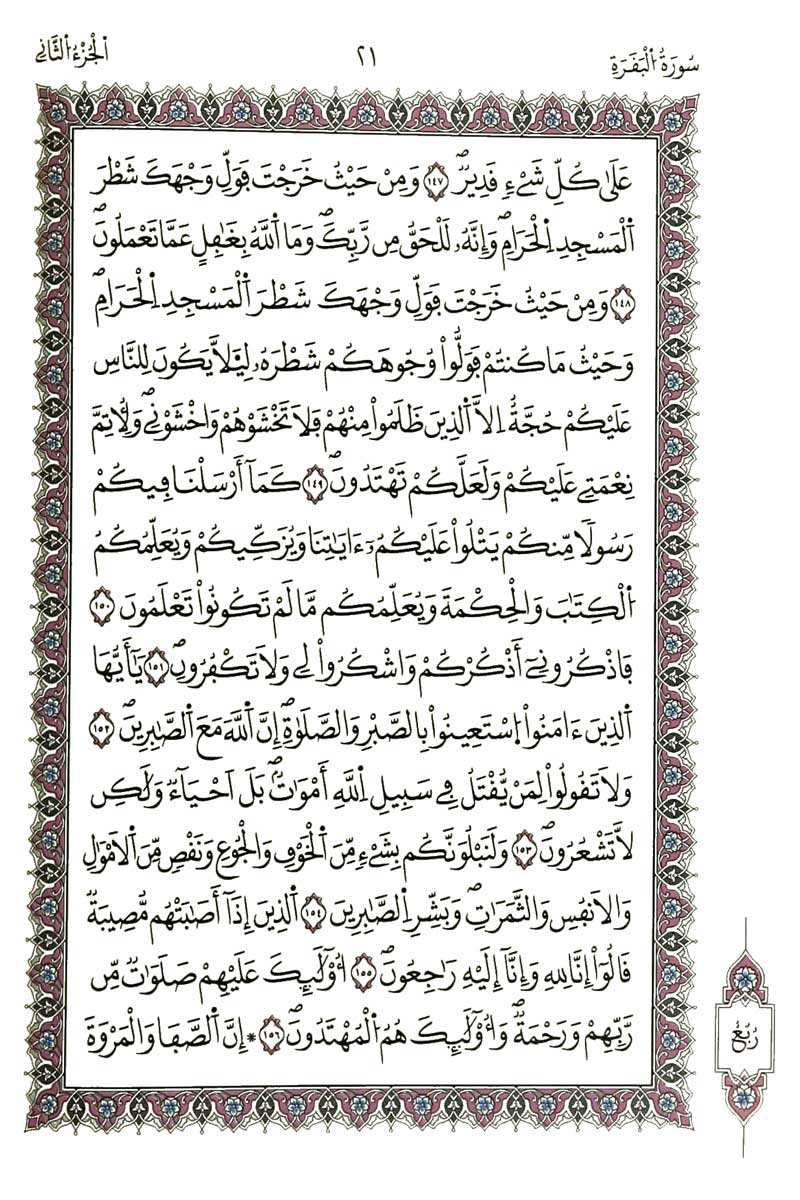 سُورَةُ الْبَقَرَةِ
٢١
الْجُزْءُ الثَّانِي
عَلَىٰ كُلِّ شَےْءٖ فَدِيرٌۖ ١٤٧ وَمِنْ حَيْثُ خَرَجْتَ فَوَلِّ وَجْهَكَ شَطْرَ
اَ۬لْمَسْجِدِ اِ۬لْحَرَامِۖ وَإِنَّهُۥ لَلْحَقُّ مِن رَّبِّكَۖ وَمَا اَ۬للَّهُ بِغَٰفِلٍ عَمَّا تَعْمَلُونَۖ
١٤٨ وَمِنْ حَيْثُ خَرَجْتَ فَوَلِّ وَجْهَكَ شَطْرَ اَ۬لْمَسْجِدِ اِ۬لْحَرَامِۖ
وَحَيْثُ مَا كُنتُمْ فَوَلُّواْ وُجُوهَكُمْ شَطْرَهُۥ لِيَلَّا يَكُونَ لِلنَّاسِ
عَلَيْكُمْ حُجَّةٌ اِلَّا اَ۬لذِينَ ظَلَمُواْ مِنْهُمْ فَلَا تَخْشَوْهُمْ وَاخْشَوْنِےۖ وَلِأُتِمَّ
نِعْمَتِے عَلَيْكُمْ وَلَعَلَّكُمْ تَهْتَدُونَۖ ١٤٩ كَمَآ أَرْسَلْنَا فِيكُمْ
رَسُولاٗ مِّنكُمْ يَتْلُواْ عَلَيْكُمُۥٓ ءَايَٰتِنَا وَيُزَكِّيكُمْ وَيُعَلِّمُكُمُ
اُ۬لْكِتَٰبَ وَالْحِكْمَةَ وَيُعَلِّمُكُم مَّا لَمْ تَكُونُواْ تَعْلَمُونَ ١٥٠
فَاذْكُرُونِےٓ أَذْكُرْكُمْ وَاشْكُرُواْ لِے وَلَا تَكْفُرُونِۖ ١٥١ يَٰٓأَيُّهَا
اَ۬لذِينَ ءَامَنُواْ اُ۪سْتَعِينُواْ بِالصَّبْرِ وَالصَّلَوٰةِۖ إِنَّ اَ۬للَّهَ مَعَ اَ۬لصَّٰبِرِينَۖ ١٥٢
وَلَا تَقُولُواْ لِمَنْ يُّقْتَلُ فِے سَبِيلِ اِ۬للَّهِ أَمْوَٰتٌۢۖ بَلَ اَحْيَآءٌ وَلَٰكِن
لَّا تَشْعُرُونَۖ ١٥٣ وَلَنَبْلُوَنَّكُم بِشَےْءٖ مِّنَ اَ۬لْخَوْفِ وَالْجُوعِ وَنَقْصٖ مِّنَ اَ۬لَامْوَٰلِ
وَالَانفُسِ وَالثَّمَرَٰتِۖ وَبَشِّرِ اِ۬لصَّٰبِرِينَ ١٥٤ اَ۬لذِينَ إِذَآ أَصَٰبَتْهُم مُّصِيبَةٌ
قَالُوٓاْ إِنَّا لِلهِ وَإِنَّآ إِلَيْهِ رَٰجِعُونَۖ ١٥٥ أُوْلَٰٓئِكَ عَلَيْهِمْ صَلَوَٰتٌ مِّن
رَّبِّهِمْ وَرَحْمَةٌۖ وَأُوْلَٰٓئِكَ هُمُ اُ۬لْمُهْتَدُونَۖ ١٥٦ ۞ إِنَّ اَ۬لصَّفَا وَالْمَرْوَةَ
رُبُعُ